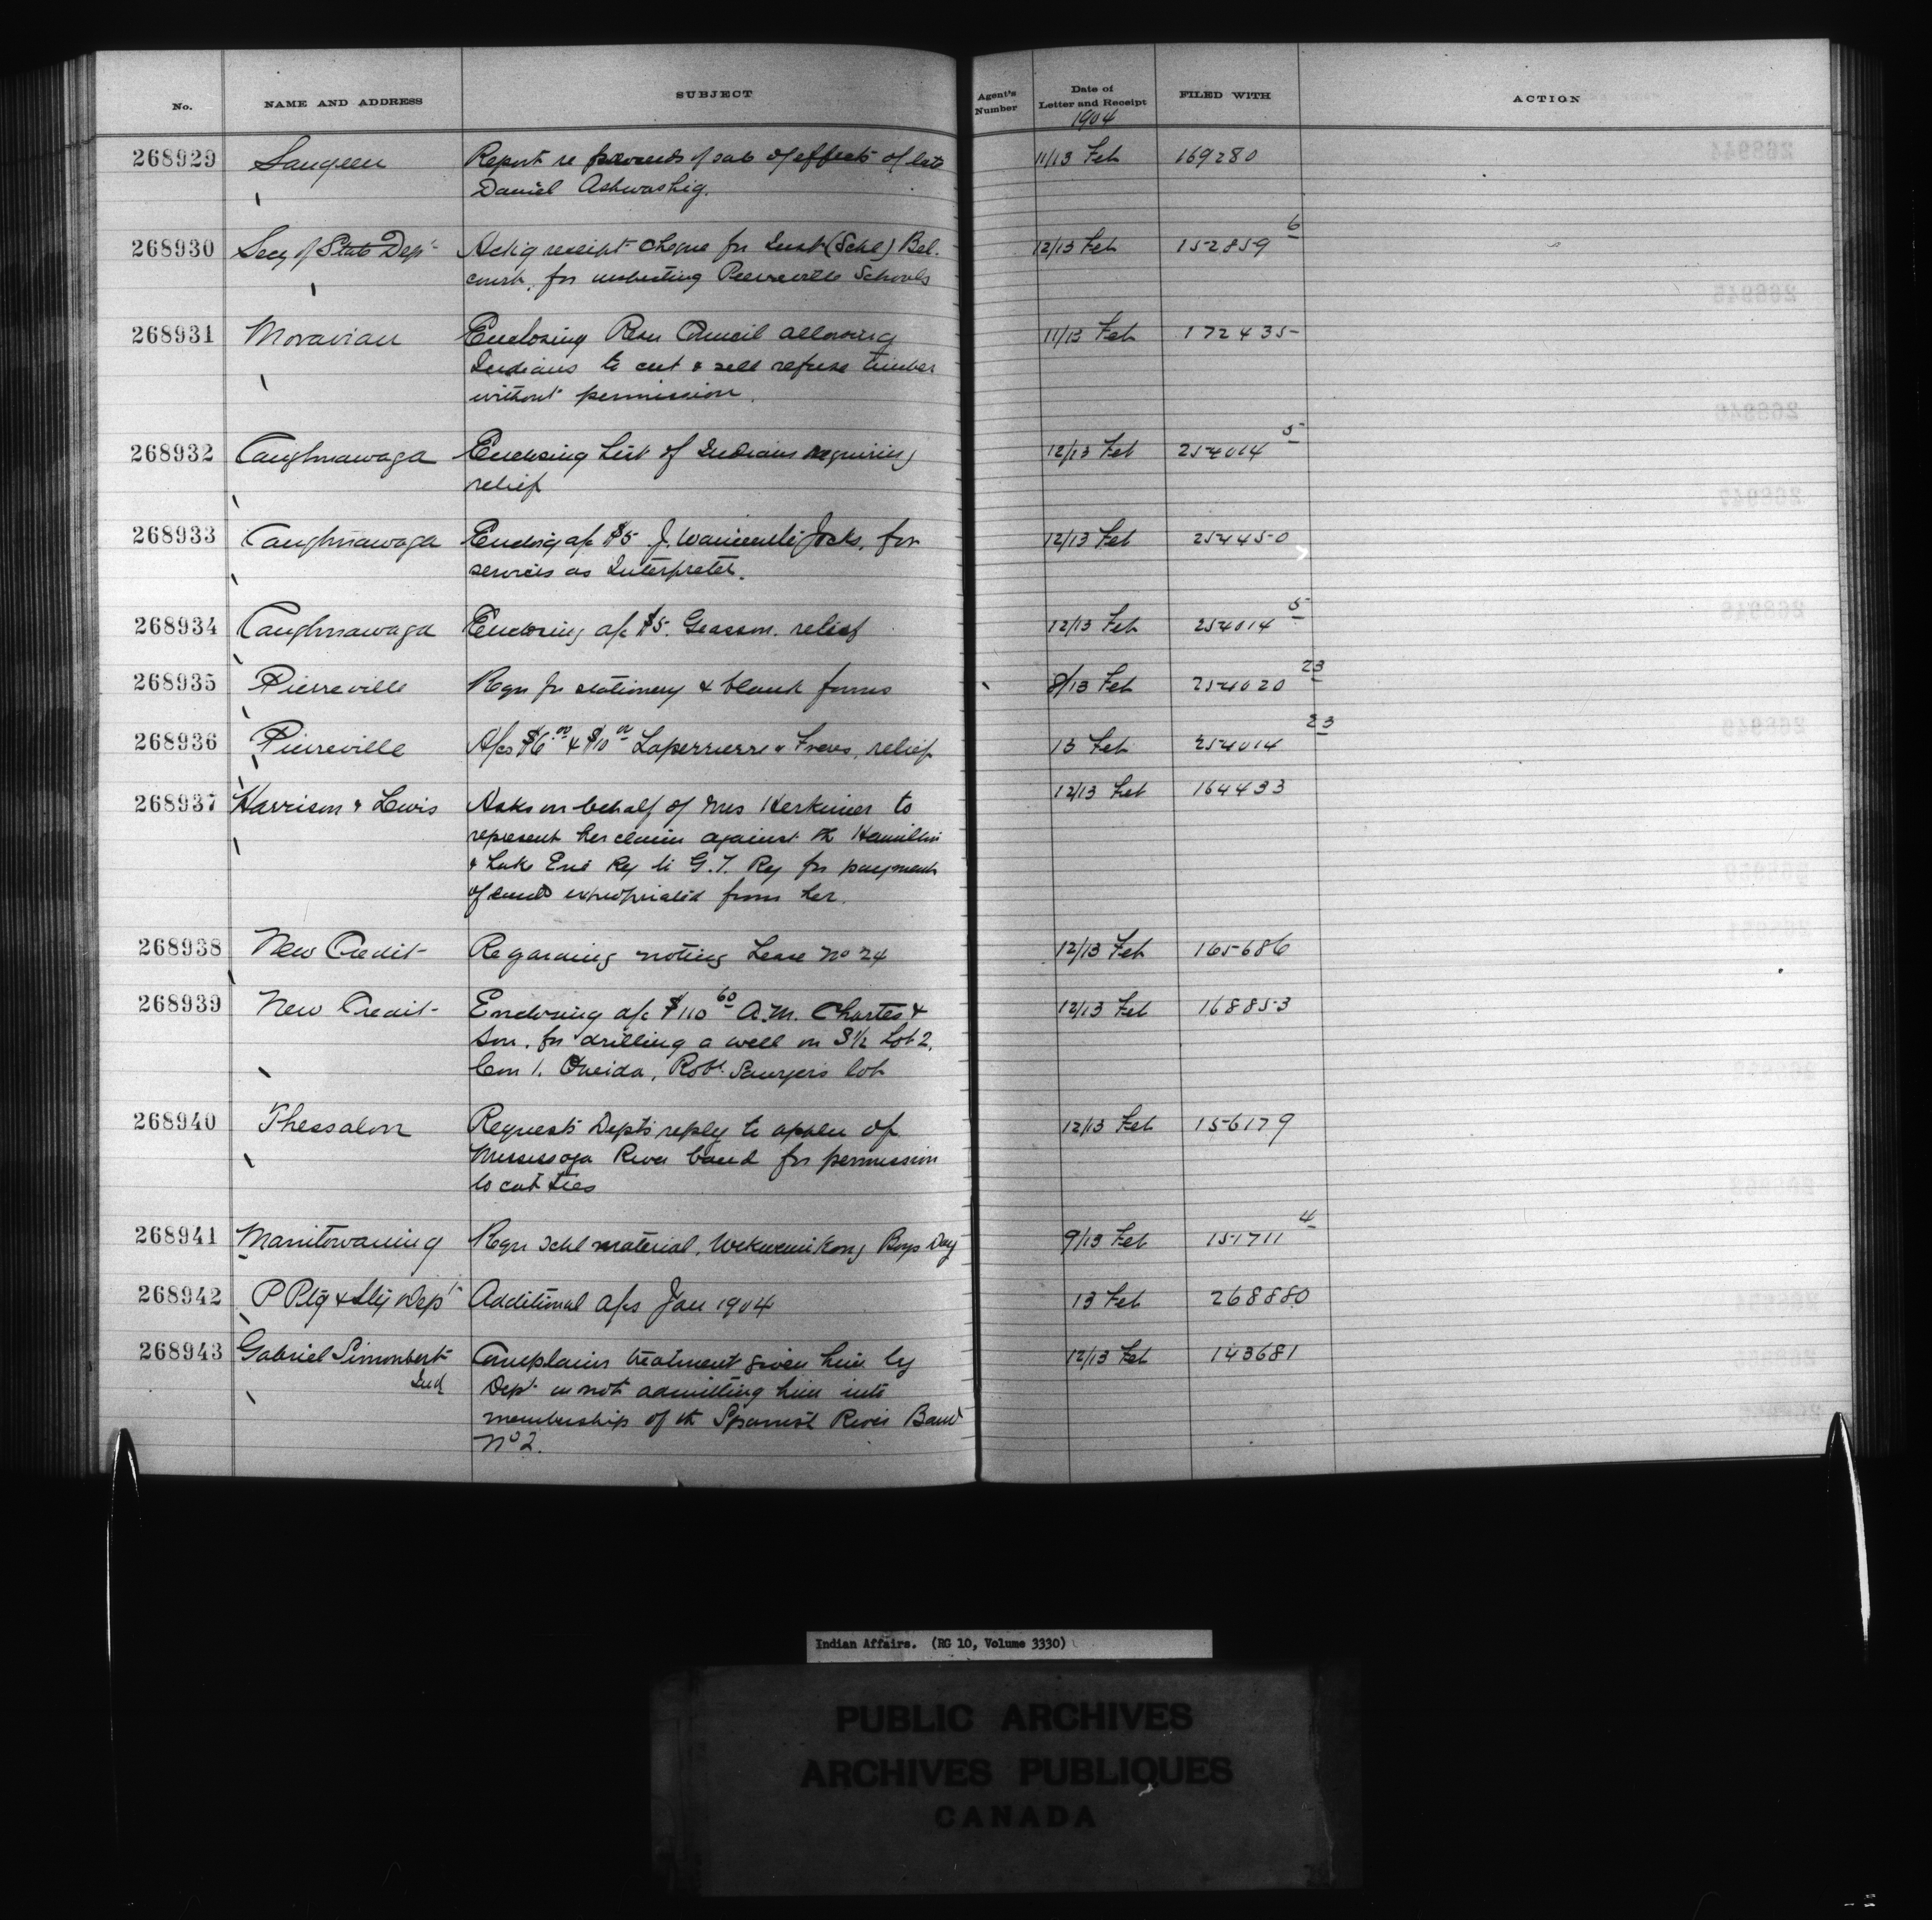 No. NAME AND ADDRESS SUBJECT Agent's Number Date of Letter and Receipt FILED WITH ACTION
1904
268929 Saugeen Report re proceeds of sale of effects of late 11/13 Feb 169280
Daniel Ashwashig.
268930 Secy of State Dept Ackg receipt cheque for Inspt (Schl) Bel- 12/13 Feb 152859 6
court, for inspecting Pierreville Schools
268931 Moravian Enclosing Resn Council allowing 11/13 Feb 172435
Indians to cut & sell refuse timber
without permission.
268932 Caughnawaga Enclosing List of Indians requiring 12/13 Feb 254014 5
relief
268933 Caughnawaga Enclosig a/c $5 J. Jocks, for 12/13 Feb 254450
services as Interpreter.
268934 Caughnawaga Enclosing a/c $5. Geasson. relief 12/13 Feb 254014 5
268935 Pierreville Reqn for stationery & blank forms 8/13 Feb 254020 23
268936 Pierreville A/cs $6.00 & $10.00 Laperrierre & Freres, relief 13 Feb 254014 23
268937 Harrison & Lewis Asks on behalf of Mrs Herkimer to 12/13 Feb 164433
represent her claim against the Hamilton
& Lake Erie Ry to G.T. Ry for payment
of land expropriated from her.
268938 New Credit Regarding noting Lease No 24 12/13 Feb 165686
268939 New Credit Enclosing a/c $110 60 A.M. Charter & 12/13 Feb 168853
Son, for drilling a well on S½ Lot 2,
Con 1. Oneida, Robt. Sawyers lot
268940 Thessalon Requests Depts reply to appln of 12/13 Feb 156179
Mississaga River band for permission
to cut ties
268941 Manitowaning Reqn Schl material, Wekwemikong Boys Day 9/13 Feb 151711 4
268942 P Ptg & Sty Dept Additional a/cs Jan 1904 13 Feb 268880
268943 Gabriel Simonbert Complains treatment given him by 12/13 Feb 143681
Ind Dept in not admitting him into
membership of the Spanish River Band
No 2.
Indian Affairs. (RG 10, Volume 3330)
PUBLIC ARCHIVES
ARCHIVES PUBLIQUES
CANADA